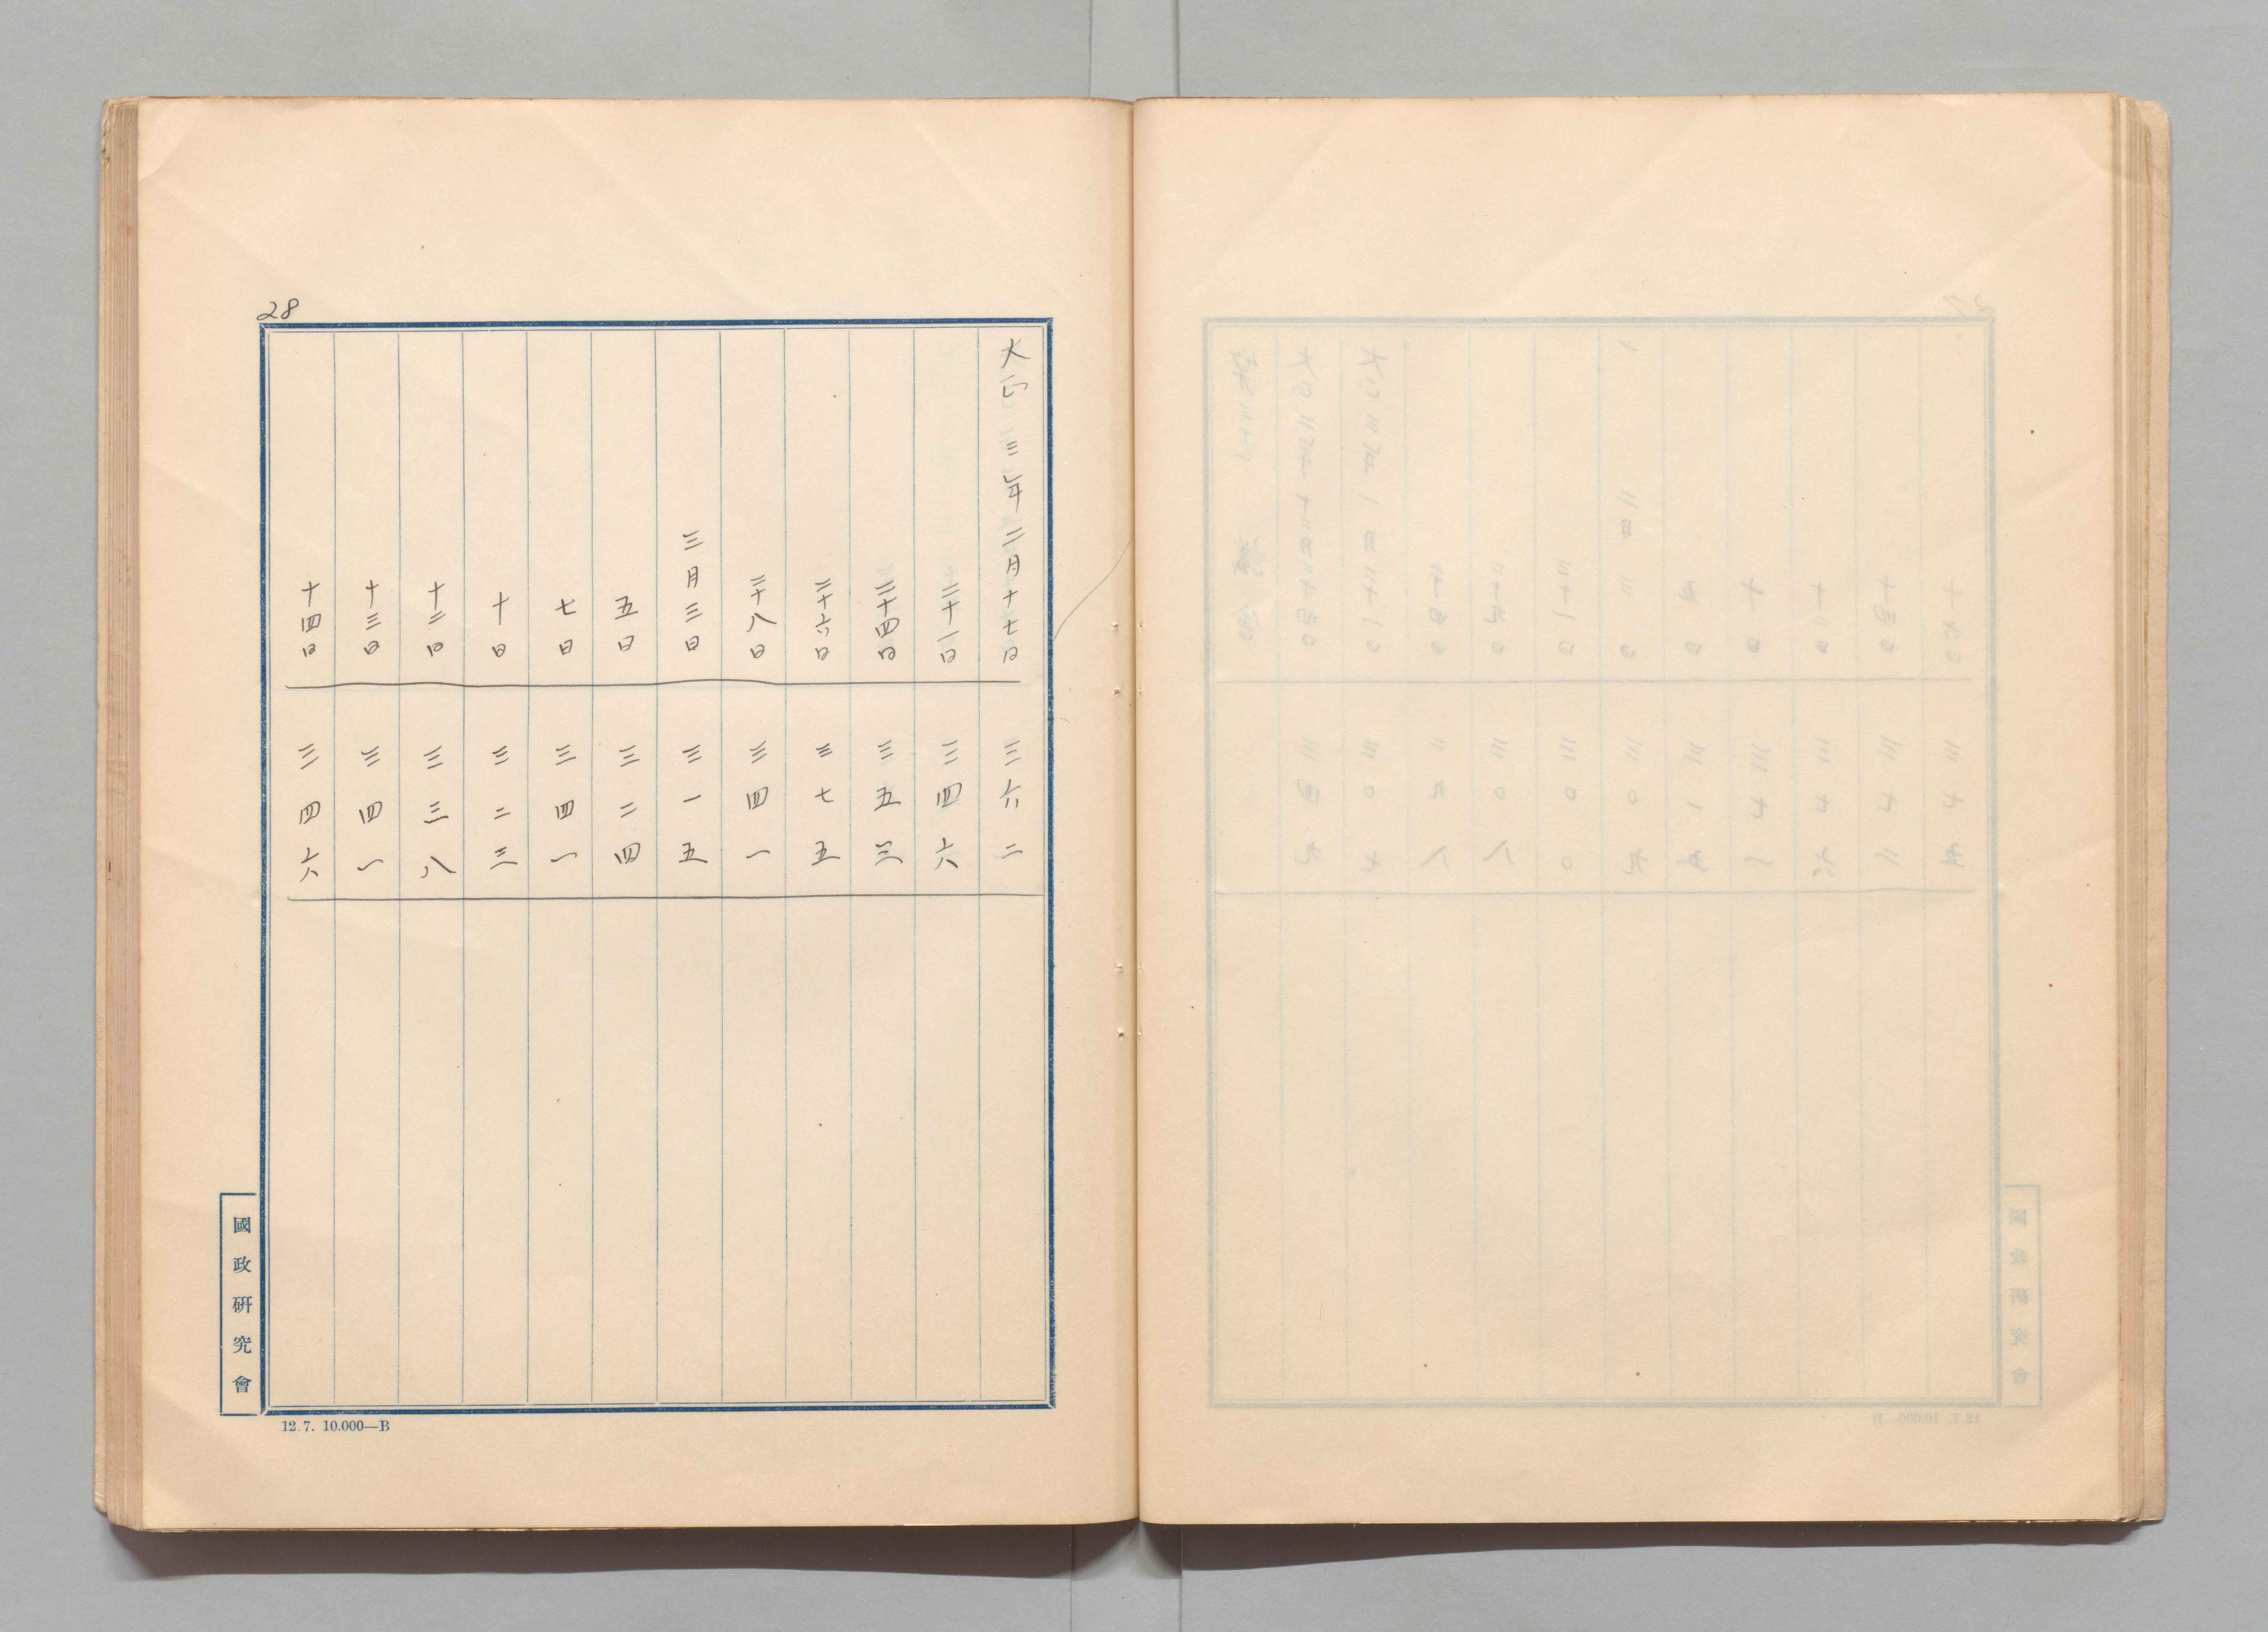 28
大正三年二月十七日 三六二
二十一日 三四六
二十四日 三五三
二十六日 三七五
二十八日 三四一
三月三日 三一五
五日 三二四
七日 三四一
十日 三二三
十二日 三三八
十三日 三四一
十四日 三四六
國政研究會
12.7. 10.000—B